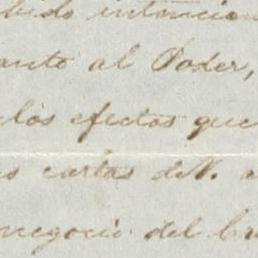 bido intencion
anto al Poder,
los efectos que
s cartas de V. a
negocio del